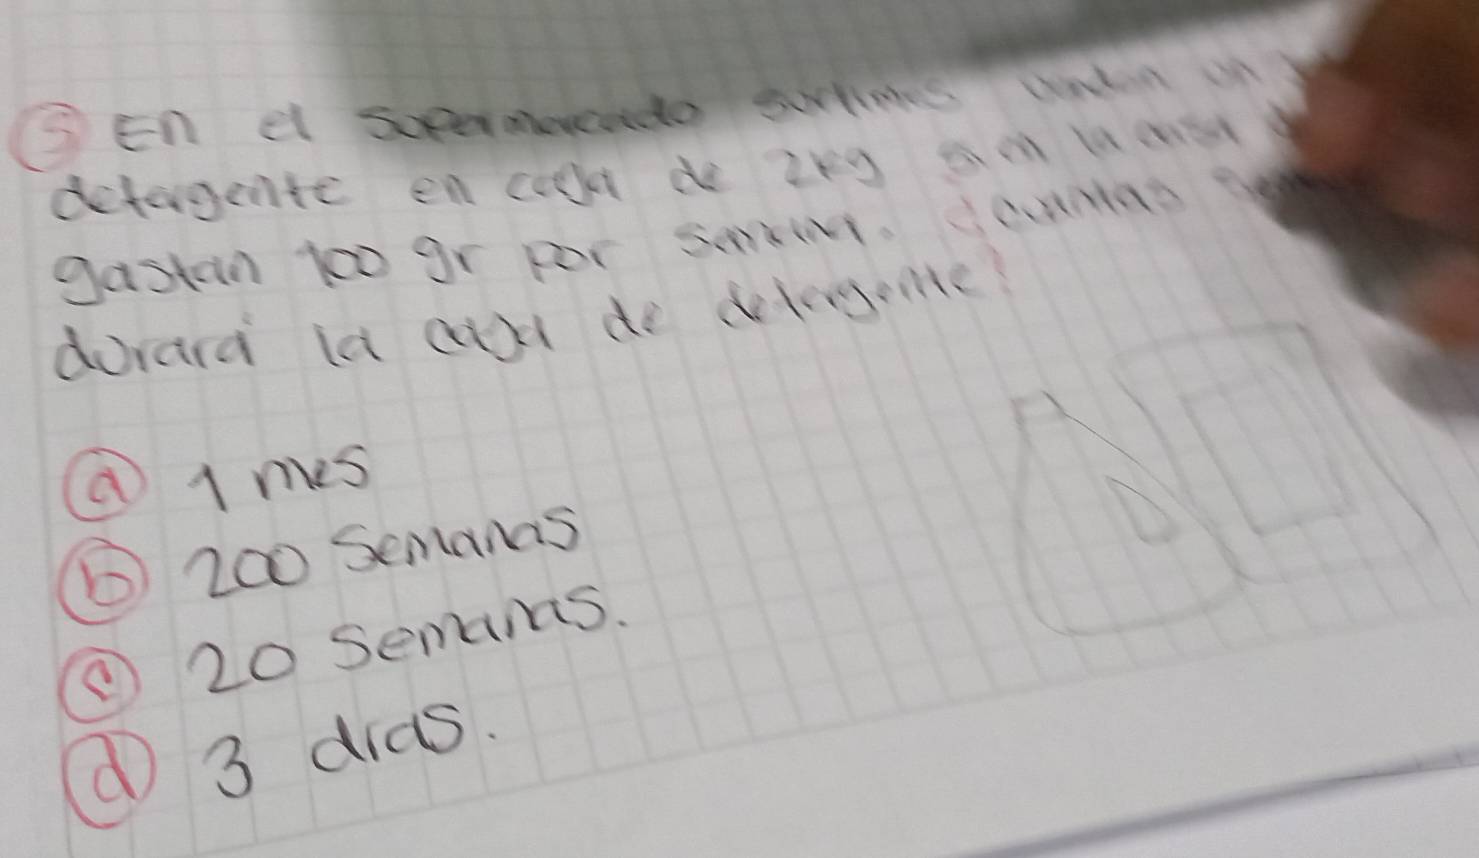 ⑤ En el supermercado surtimas venden un
detergente en caja de 2kg si en la casa
gastan 100 gr por semana. ¿cuantas
durará la caja de detergente?
ⓐ 1 mes
ⓑ 200 Semanas
ⓒ 20 Semanas.
ⓓ 3 dias.